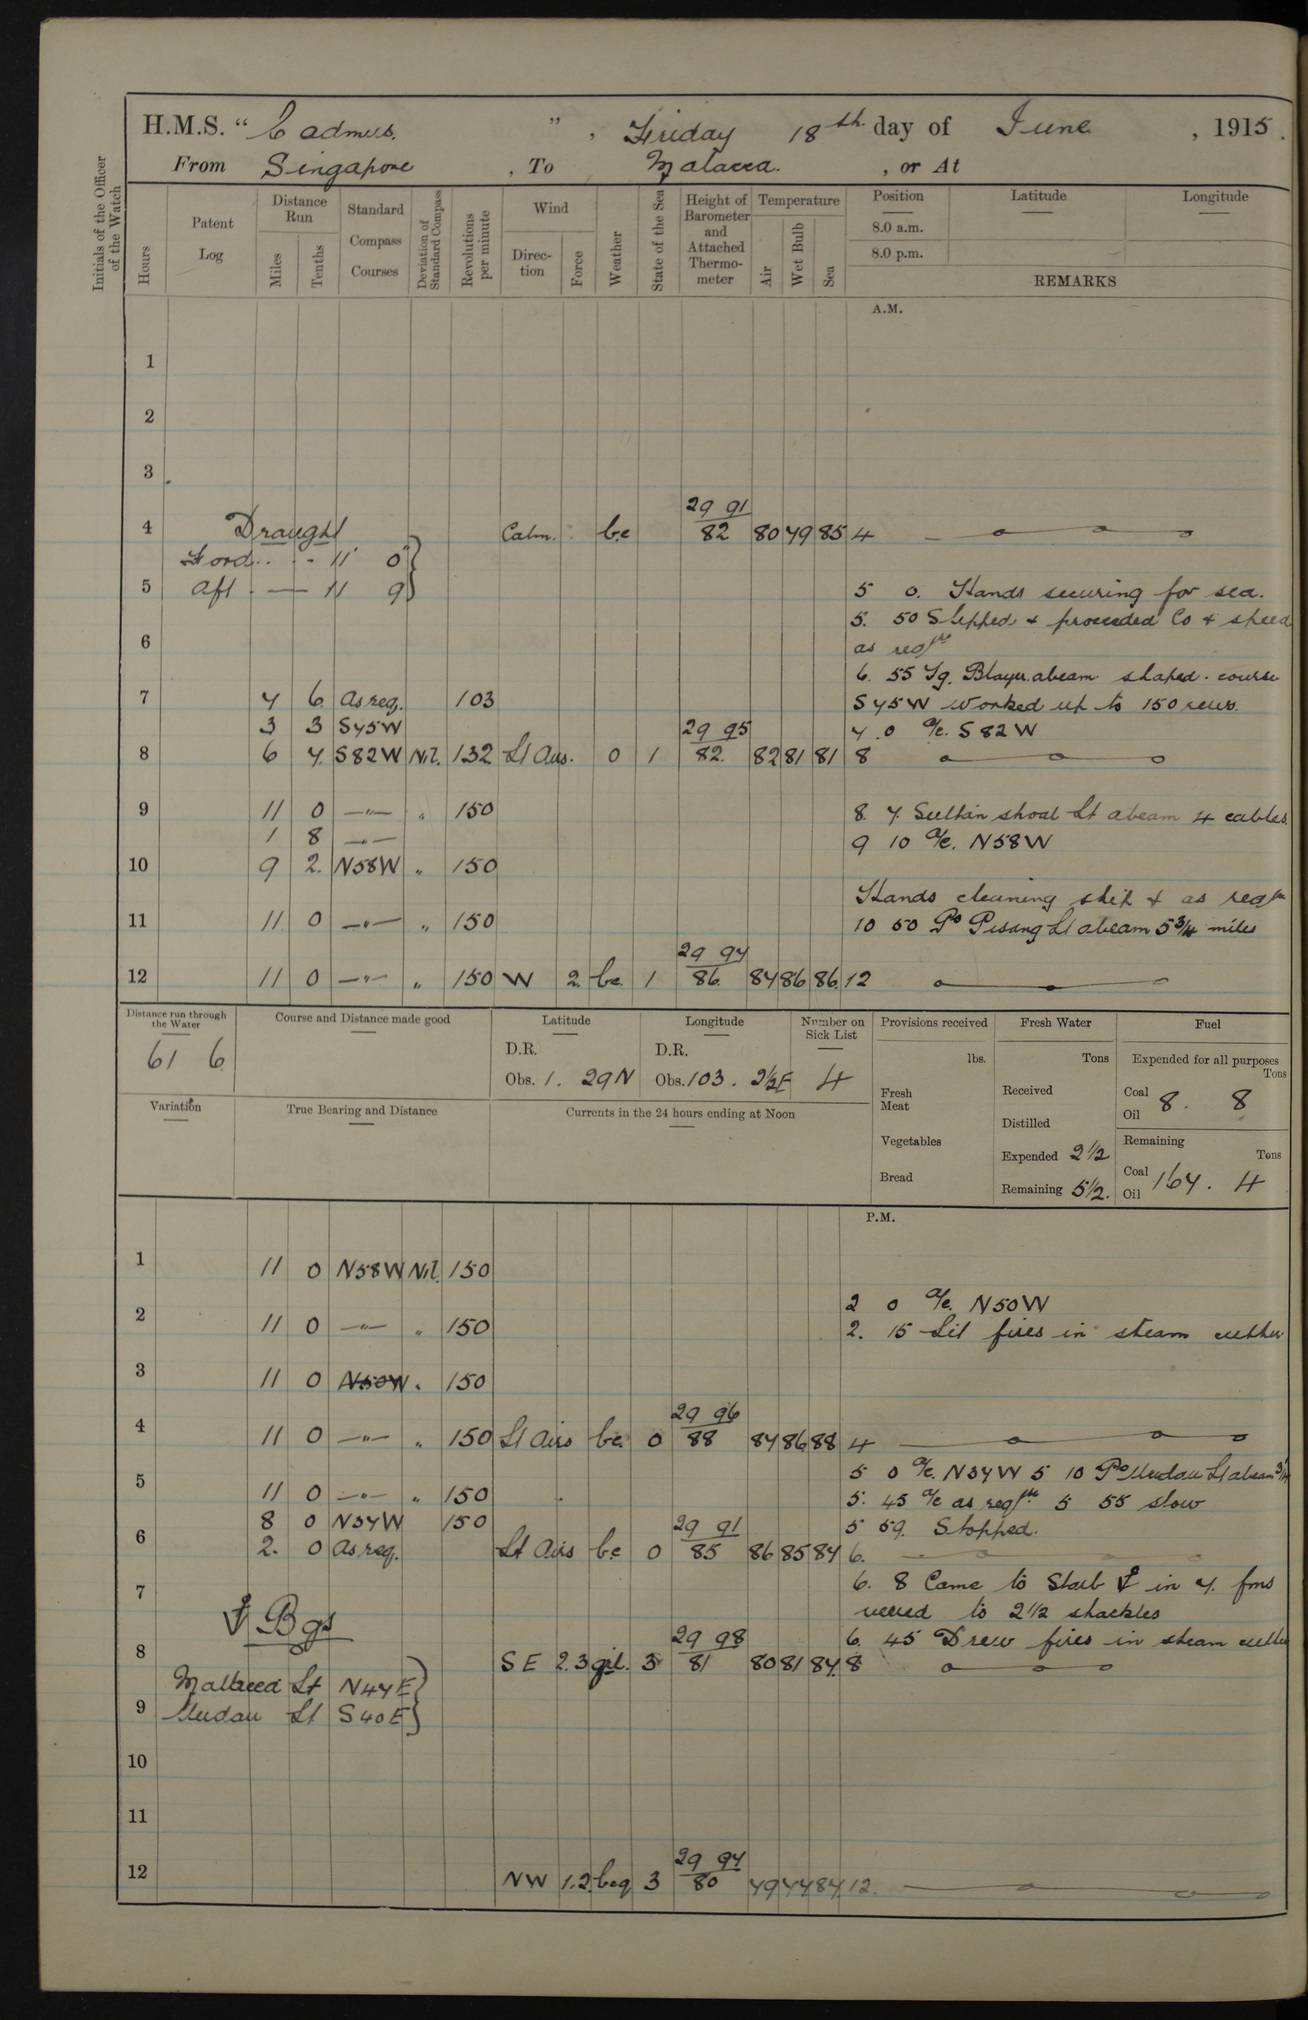 H.M.S. “ Cadmus. ” , Friday 18th day of June , 1915.
From Singapore , To Malacca. , or At
Initials of the Officer of the Watch
Hours
Patent Log
Distance Run
Miles
Tenths
Standard Compass Courses
Deviation of Standard Compass
Revolutions per minute
Wind
Direction
Force
Weather
State of the Sea
Height of Barometer and Attached Thermometer
Temperature
Air
Wet Bulb
Sea
Position
8.0 a.m.
8.0 p.m.
Latitude
Longitude
REMARKS
A.M.
1
2
3
29 91
4 Draught Calm. bc 82 80 79 85 4
Ford 11 0
5 Aft 11 9 5 0. Hands securing for sea.
5. 50 Slipped & proceeded Co & speed
6 as reqre
6. 55 Tg. Blayer abeam shaped course
7 7 6 as req. 103 S75W worked up to 150 revs.
3 3 S75W 29 95 7.0 a/c. S82W
8 6 7 S82W Nil. 132 Lt Airs. 0 1 82. 82 81 81 8
9 11 0 —"— " 150 8. 7. Sultan shoal Lt abeam 4 cables.
1 8 —"— 9 10 a/c. N58W
10 9 2. N58W " 150
Hands cleaning ship & as reqre
11 11 0 —"— " 150 10 50 Po Pisang Lt abeam 5 3/4 miles
29 94
12 11 0 —"— " 150 W 2. bc. 1 86. 87 86 86. 12
Distance run through the Water
61 6
Course and Distance made good
Latitude
D.R.
Obs. 1. 29N
Longitude
D.R.
Obs. 103. 2½E
Number on Sick List
4
Provisions received
lbs.
Fresh Meat
Vegetables
Bread
Fresh Water
Tons
Received
Distilled
Expended 2½
Remaining 5½.
Fuel
Expended for all purposes
Tons
Coal
Oil 8. 8
Remaining
Tons
Coal
Oil 167. 4
Variation
True Bearing and Distance
Currents in the 24 hours ending at Noon
P.M.
1 11 0 N58W Nil. 150
2 0 a/c. N50W
2 11 0 —"— " 150 2. 15 Lit fires in steam cutter
3 11 0 N50W " 150
29 96
4 11 0 —"— " 150 Lt Airs bc. 0 88 87 86 88 4
5 0 a/c. N37W 5 10 Po Undan Lt abeam
5 11 0 —"— " 150 5. 45 a/c as reqre 5 55 slow
8 0 N37W 150 29 91 5 59. Stopped.
6 2. 0 as req. Lt Airs bc 0 85 86 85 84 6.
6. 8 Came to Starb ⚓ in 7. fms
7 veered to 2½ shackles
⚓ Bgs 29 98 6. 45 Drew fires in steam cutter
8 SE 2.3 3 81 80 81 84. 8
Malacca Lt N47E
9 Undan Lt S40E
10
11
29 94
12 NW 1.2. bcq 3 80 79 77 84 12.